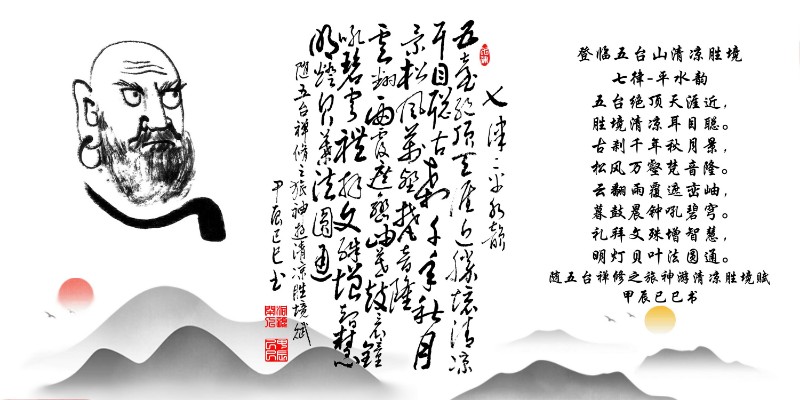 七律·平水韵
五臺絕頂天涯近勝境清凉
耳目聪古刹千年秋月
景松風萬壑梵音隆
雲翻雨覆遮巒岫暮鼓晨鐘
吼碧穹禮拜文殊增智慧
明燈貝葉法圓通
随五台禅修之旅神游清凉胜境赋
甲辰己巳书
登临五台山清凉胜境
七律-平水韵
五台绝顶天涯近，
胜境清凉耳目聪。
古刹千年秋月景，
松风万壑梵音隆。
云翻雨覆遮峦岫，
暮鼓晨钟吼碧穹。
礼拜文殊增智慧，
明灯贝叶法圆通。
随五台禅修之旅神游清凉胜境赋
甲辰己巳书